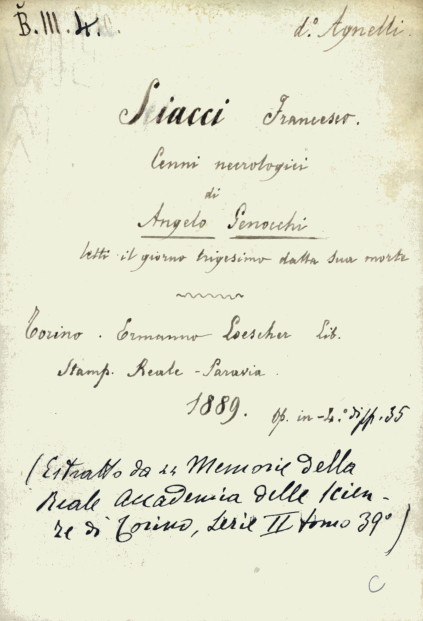 B. III. 4.
d.º Agnelli
Siacci Francesco.
Cenni necrologici
di
Angelo Genocchi
letti il giorno trigesimo dalla sua morte
Torino. Ermanno Loescher Lib.
Stamp. Reale - Paravia.
1889. Op. in-4.º di pp. 35
(Estratto da Memorie della
Reale Accademia delle Scien-
ze di Torino, Serie II tomo 39º)
C